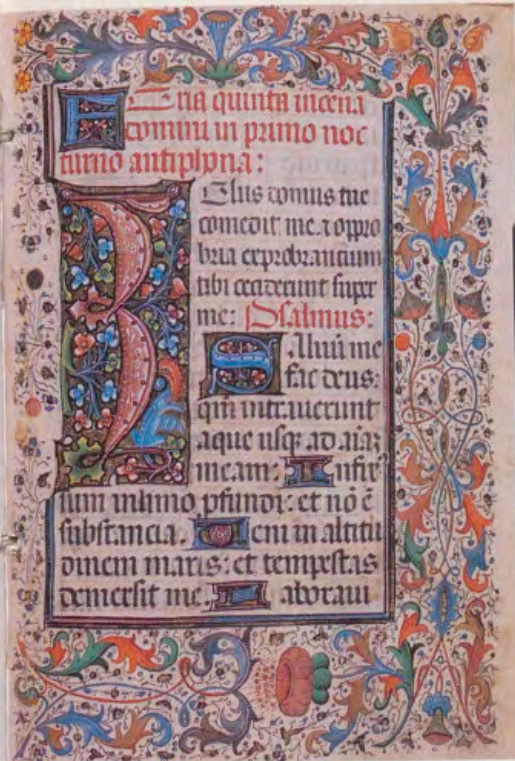 Feria quinta in cena
domini in primo noc
turno antiphona:
Zelus domus tue
comedit me. ⁊ oppro
bria exprobrantium
tibi ceciderunt super
me: Psalmus:
Saluū me
fac deus:
qm̄ intrauerunt
aque usqꝫ ad aīaꝫ
meam: Infix⁹
sum in limo ꝓfundi: et nō ē
substancia. Ueni in altitu
dinem maris: et tempestas
demersit me. Laboraui